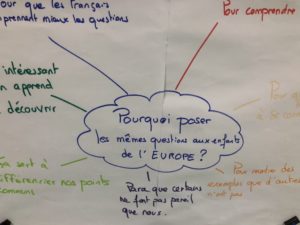 our que les Français
prennent mieux les questions
Pour comprendre
intéressant
on apprend
découvrir
Pourquoi poser
les mêmes questions aux enfants
de l'EUROPE ?
Pour
à
sert à
différencier nos points
commens
Para que certains
ne font pas pareil
que nous.
Pour
des
exemples que d'autres
n'ont pas